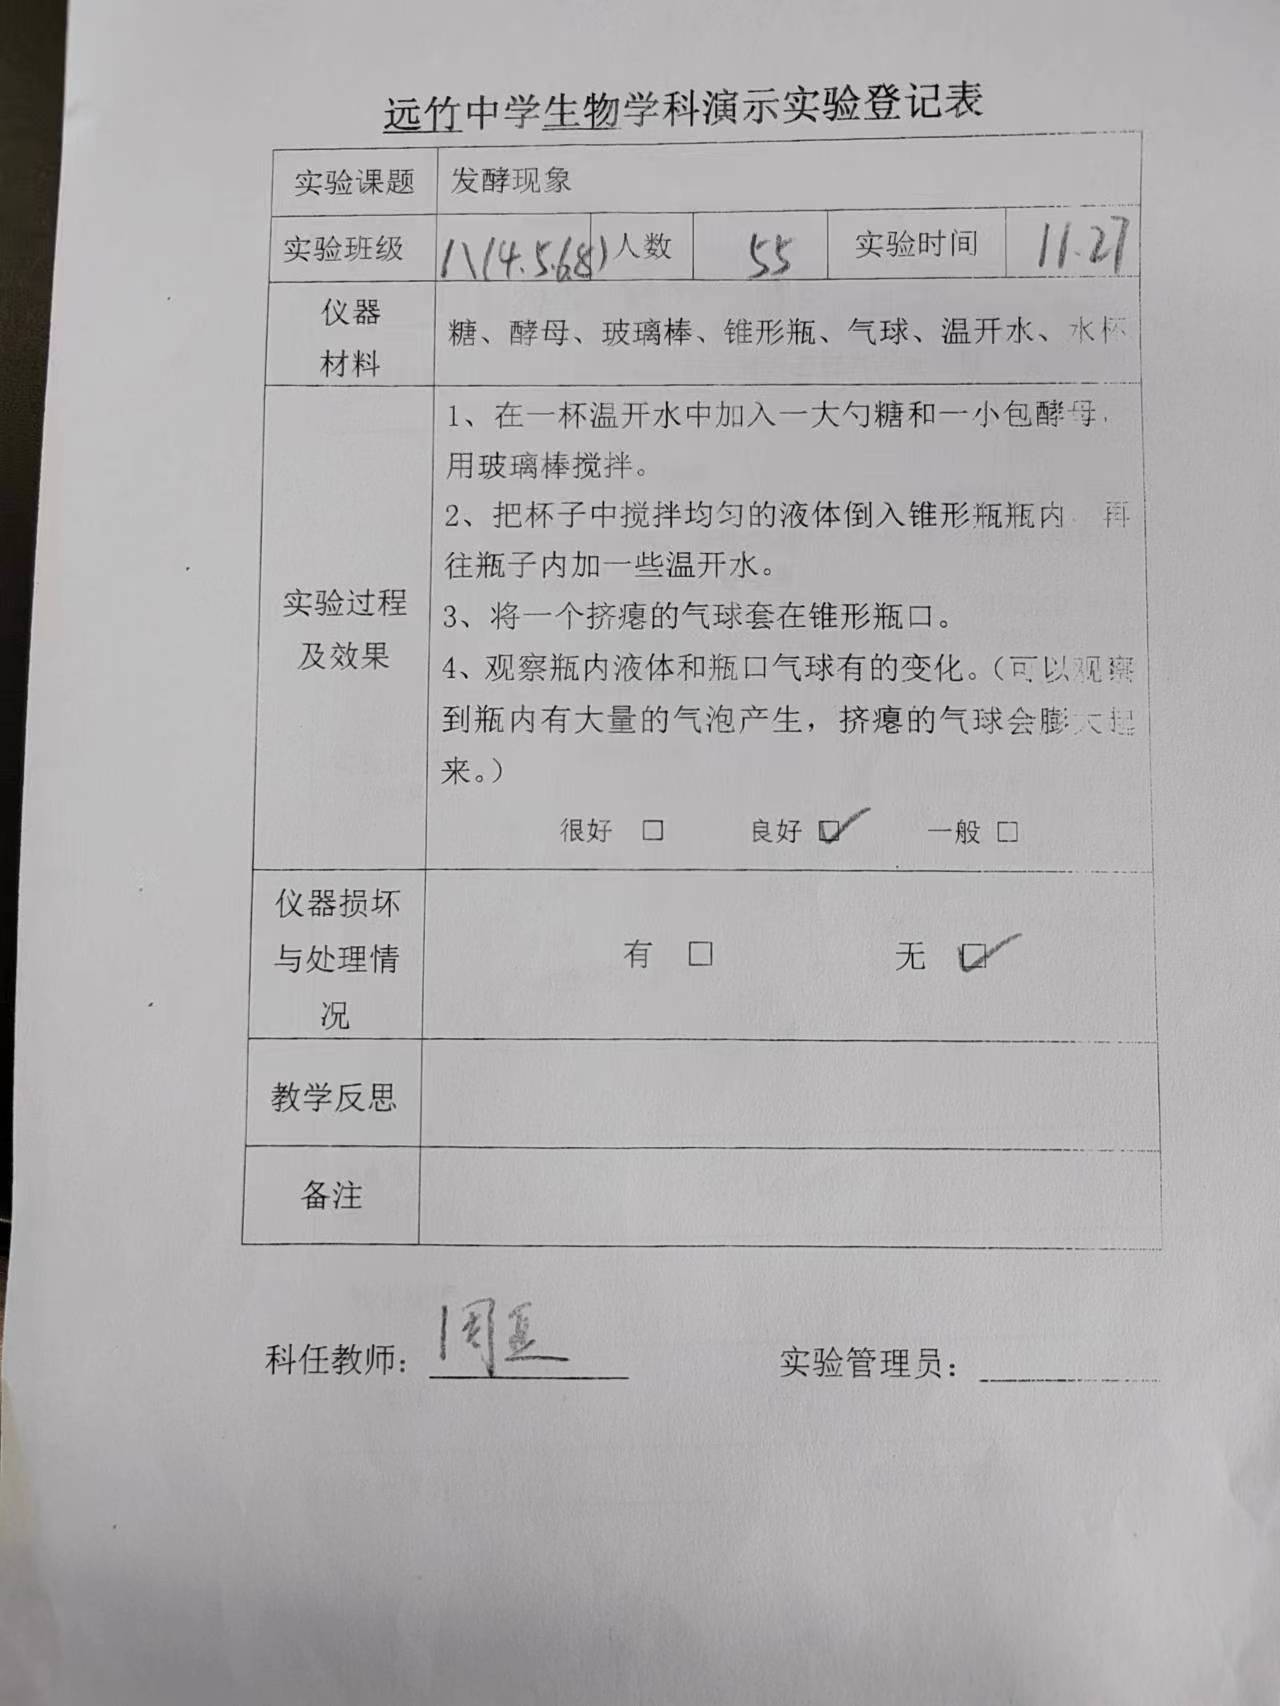 远竹中学生物学科演示实验登记表
实验课题 发酵现象
实验班级 八(4.5.6.8) 人数 55 实验时间 11.27
仪器
材料
糖、酵母、玻璃棒、锥形瓶、气球、温开水、水杯
实验过程
及效果
1、在一杯温开水中加入一大勺糖和一小包酵母，
用玻璃棒搅拌。
2、把杯子中搅拌均匀的液体倒入锥形瓶瓶内，再
往瓶子内加一些温开水。
3、将一个挤瘪的气球套在锥形瓶口。
4、观察瓶内液体和瓶口气球有的变化。（可以观察
到瓶内有大量的气泡产生，挤瘪的气球会膨大起
来。）
很好 □ 良好 ☑ 一般 □
仪器损坏
与处理情
况
有 □ 无 ☑
教学反思
备注
科任教师： 周 实验管理员：